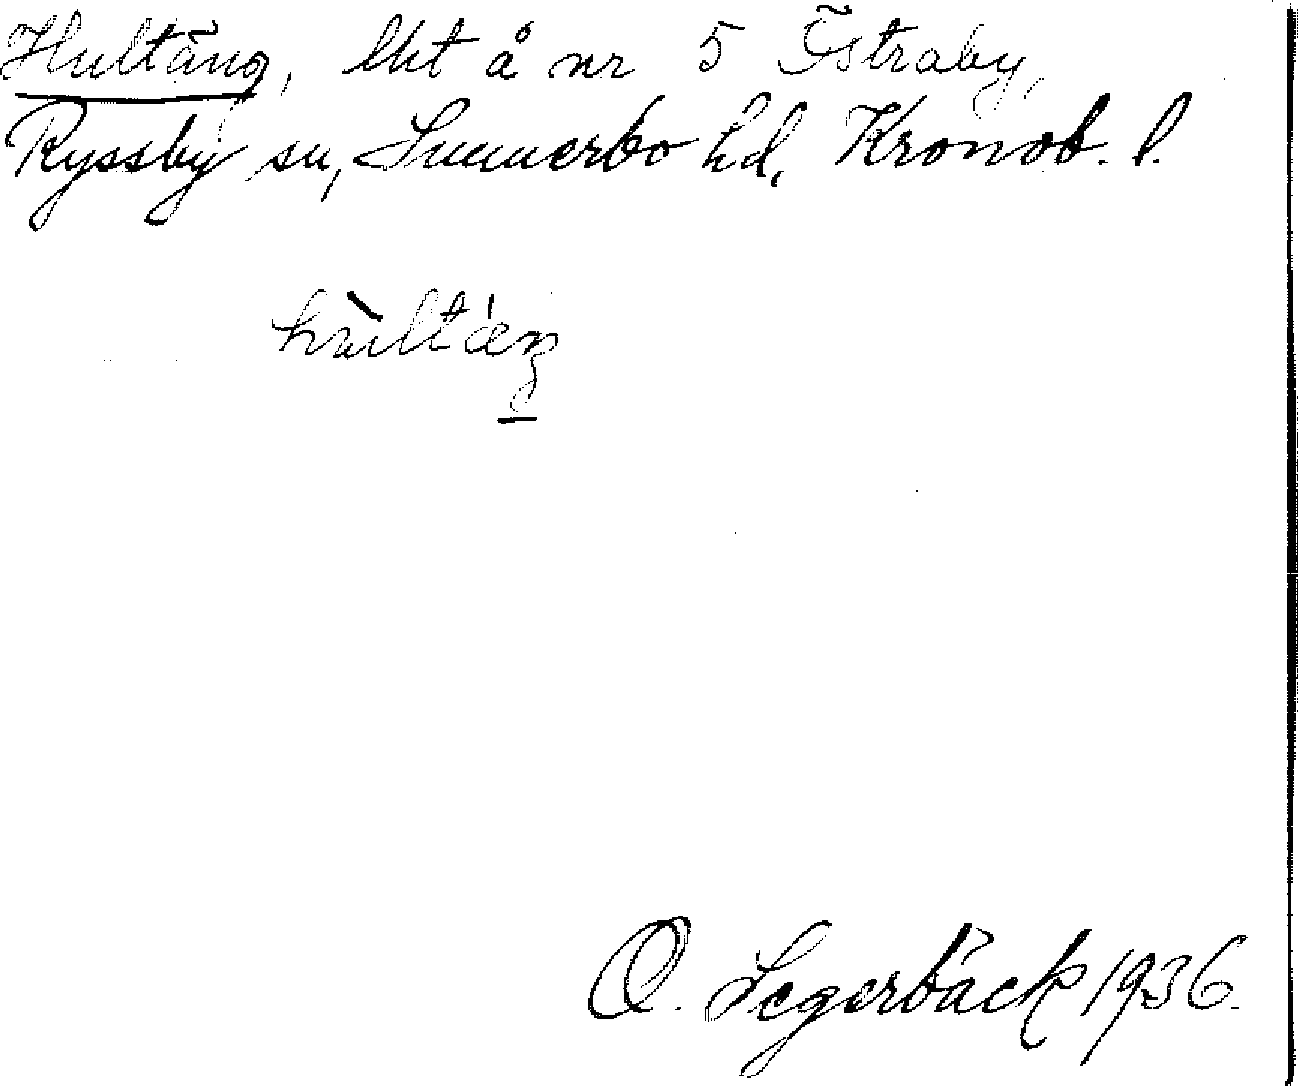 Hultäng, lht å nr 5 Östraby,
Ryssby sn, Sunnerbo hd, Kronob. l.
hùltáeŋ
O. Segerbäck 1936.